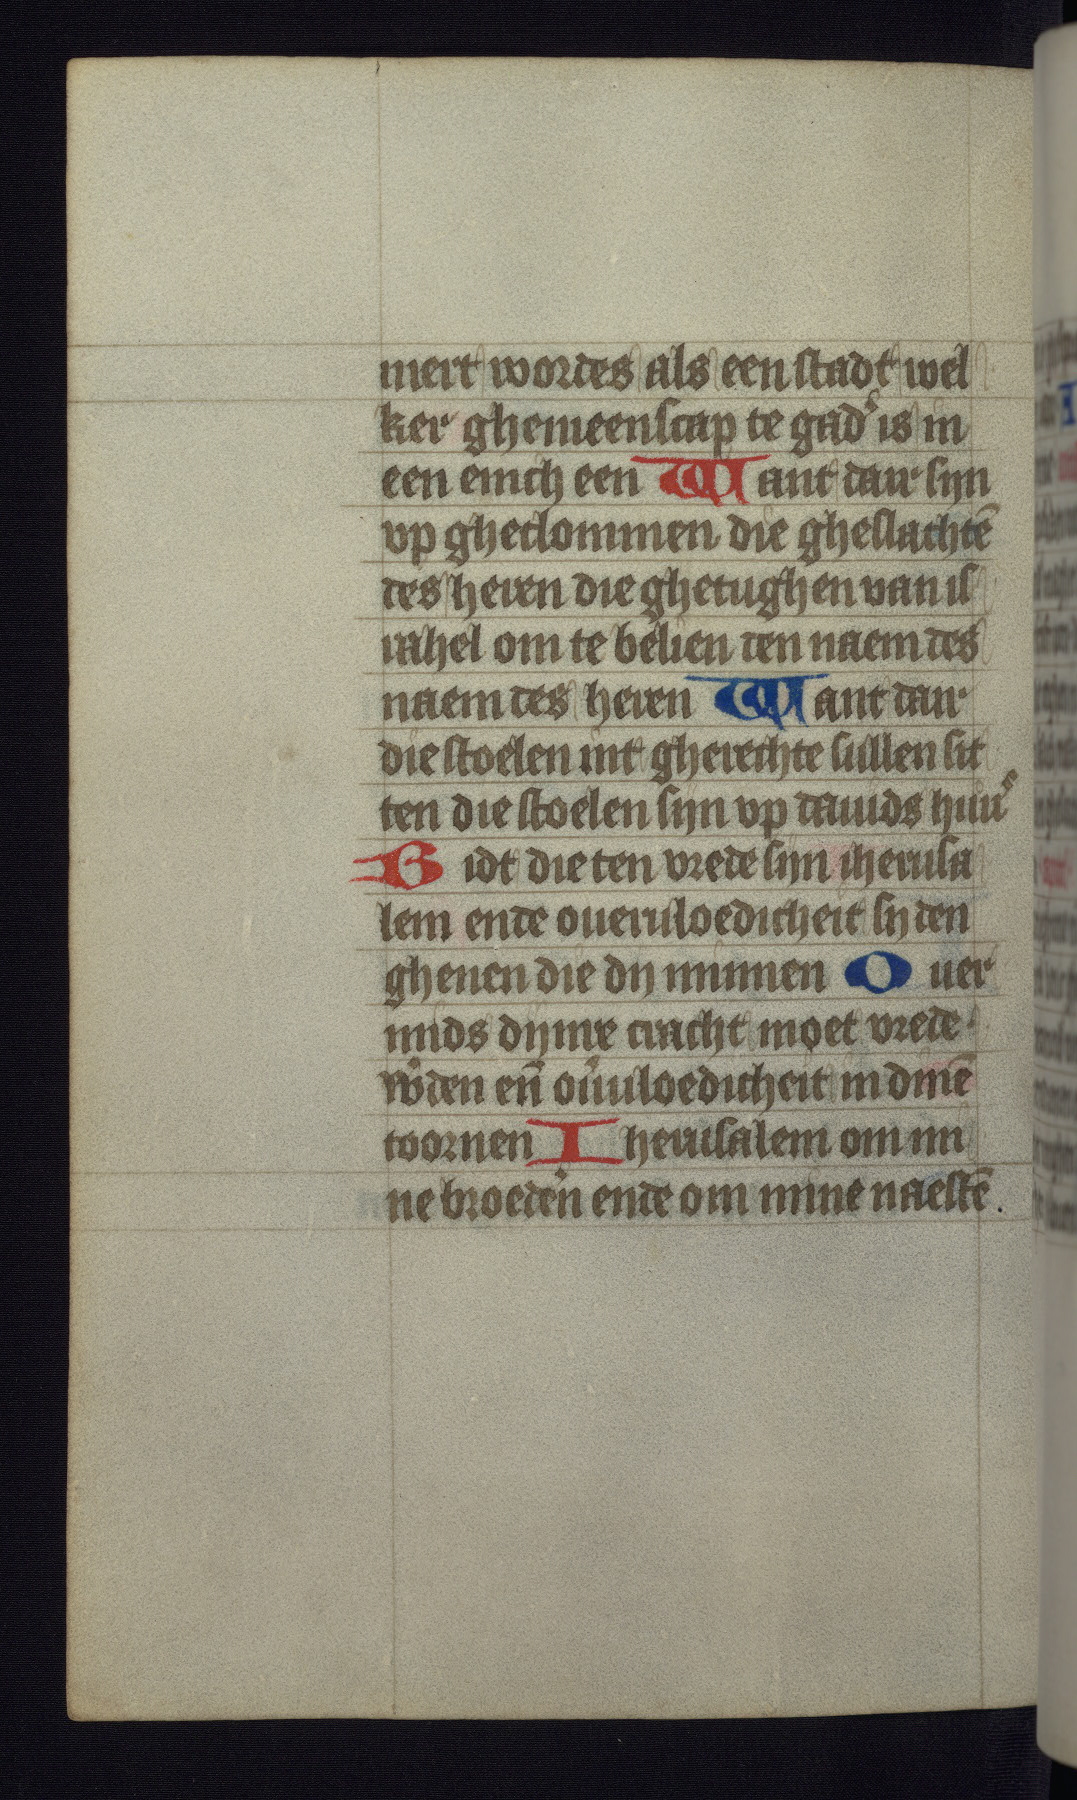 mert wordes als een stadt wel
ker ghemeenscap te gad' is in
een emich een Want daer sijn
vp gheclommen die gheslachtē
des heren die ghetughen van is
rahel om te belien den naem des
naem des heren Want daer
die stoelen int gherechte sullen sit
ten die stoelen sijn vp dauids huus
Bidt die ten vrede sijn iherusa
lem ende oueruloedicheit sy den
ghenen die dy minnen Ouer
mids dynre cracht moet vrede
w'den eñ ou'uloedicheit in dinē
toornen Iherusalem om mi
ne broed'en ende om mine naestē.